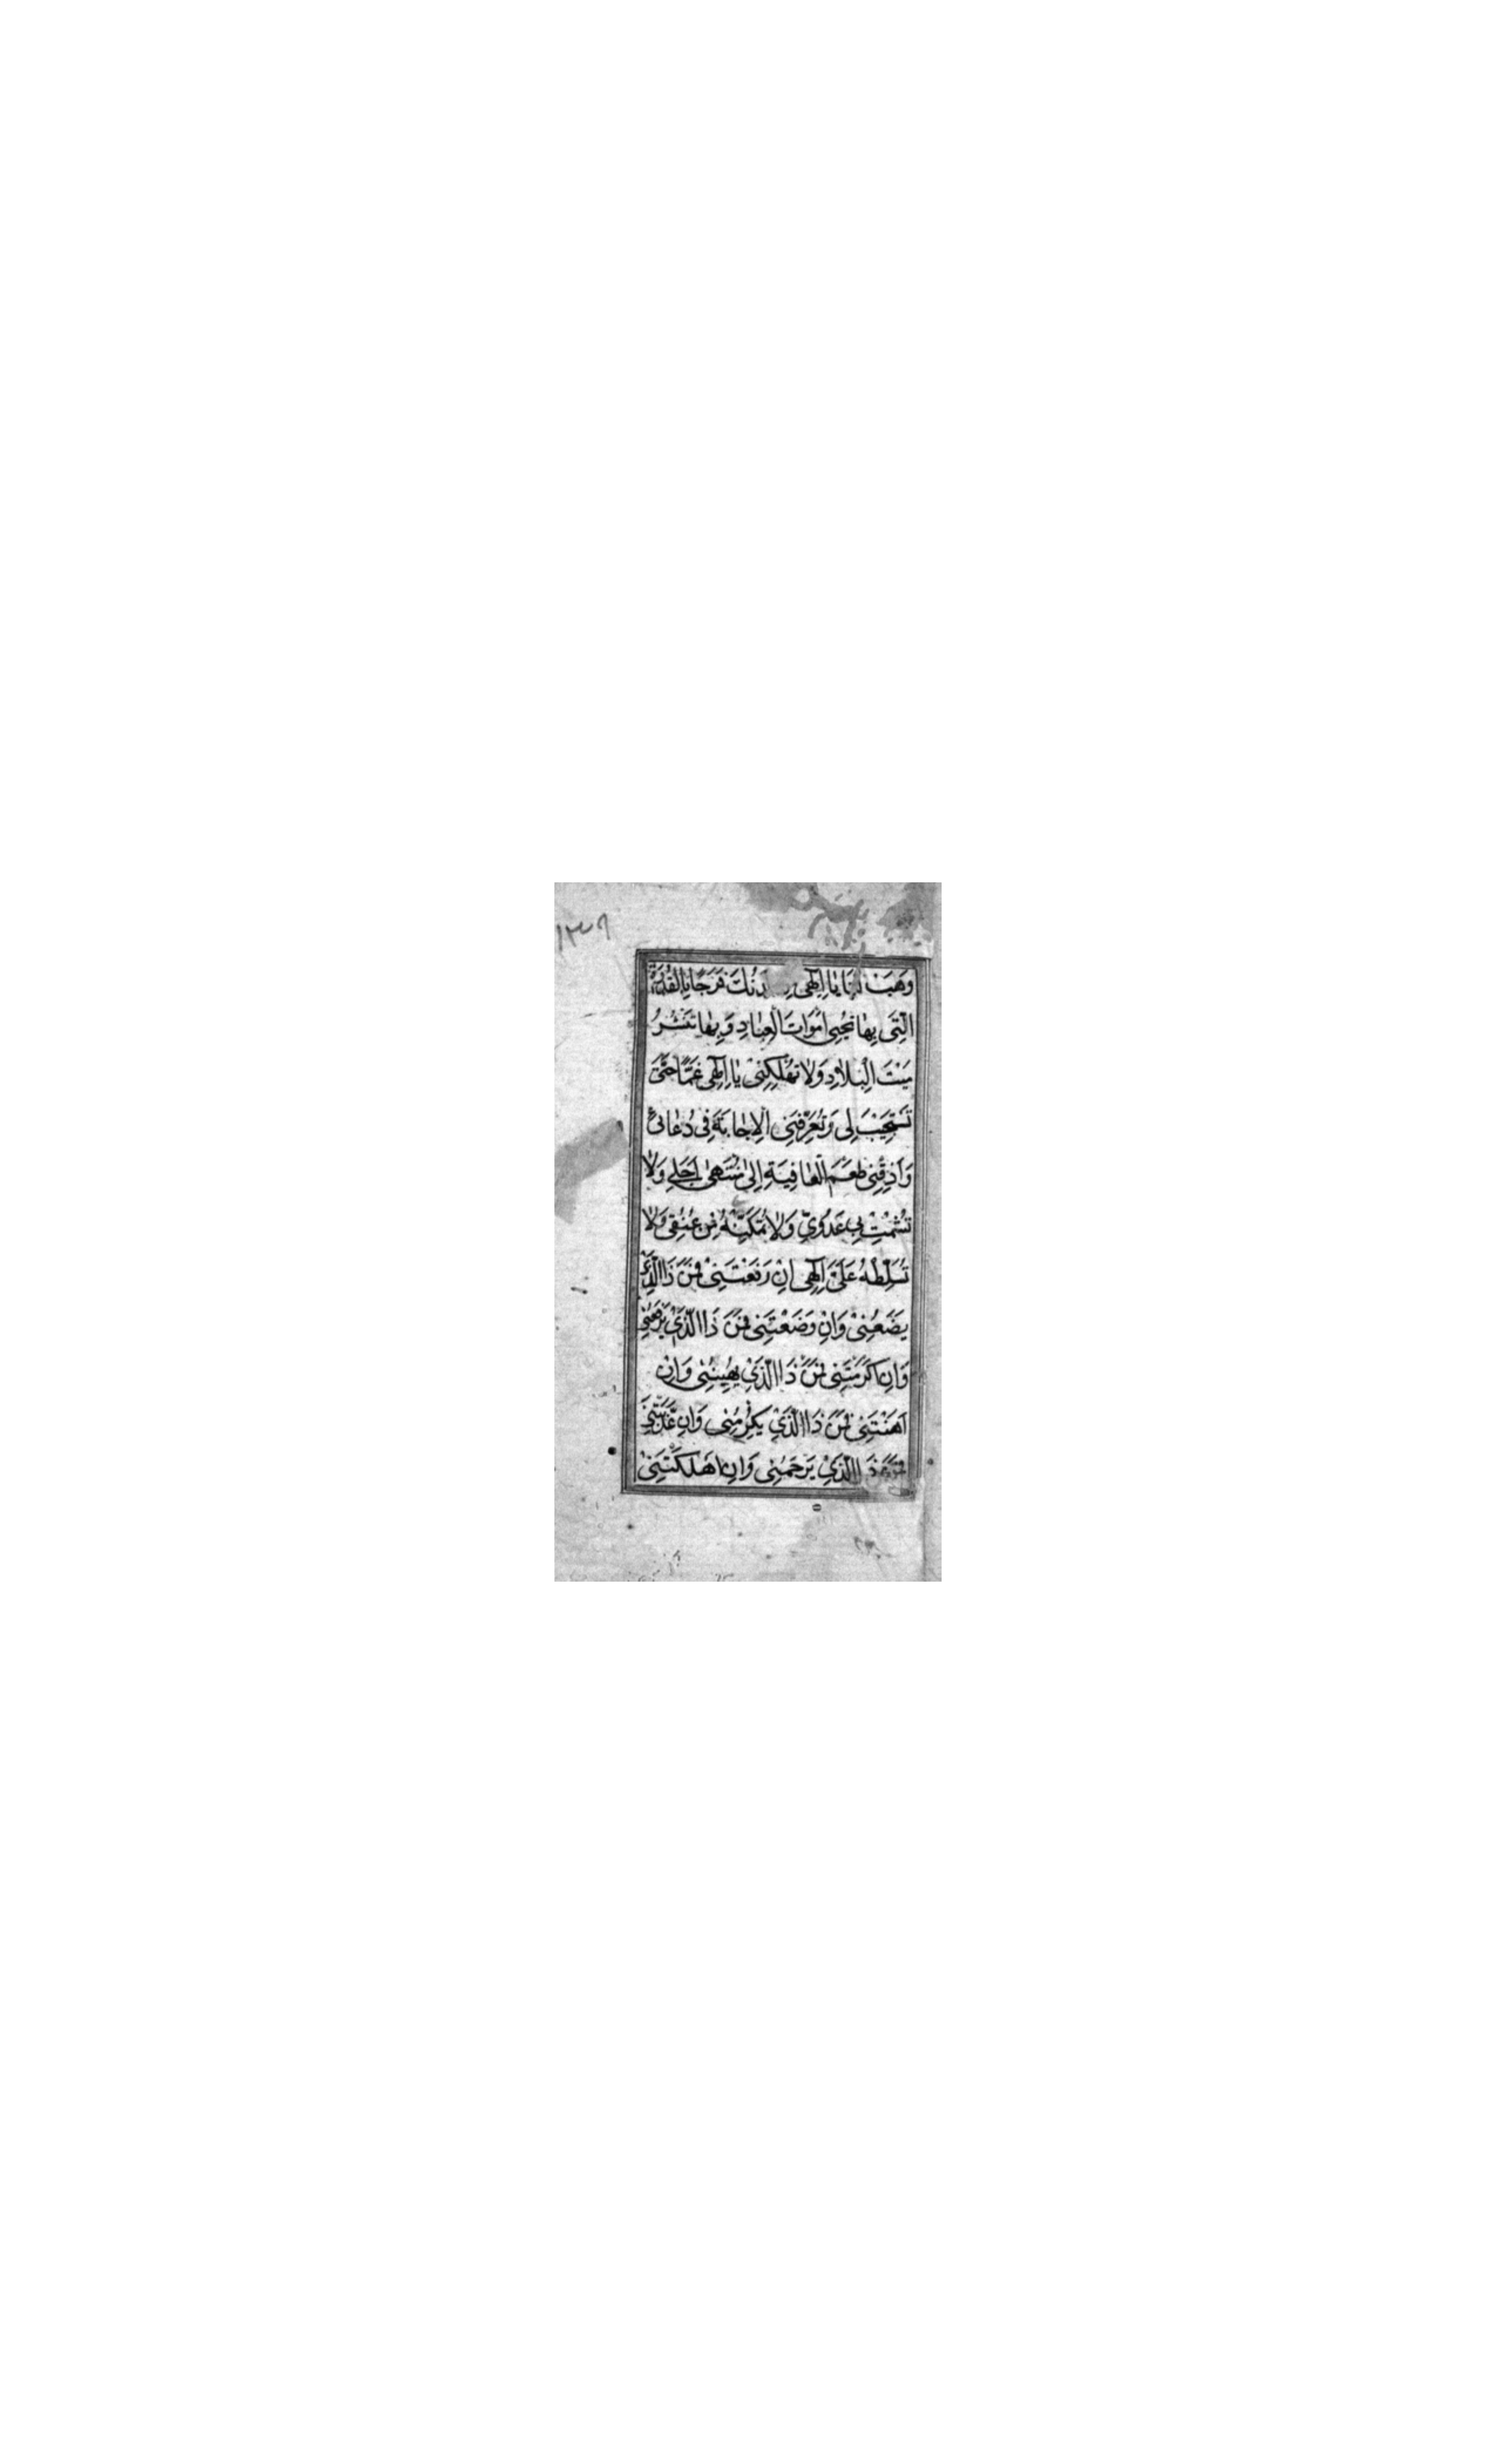 ١٣٧٩
وَهَبْ لَنَا يَا اِلٰهِى لَدُنْكَ فَرَجًا بِالْقُدْرَةِ
الَّتِى بِهَا تُحْيِى اَمْوَاتَ الْعِبَادِ وَ بِهَا تَنْشُرُ
مَيْتَ الْبِلَادِ وَلَا تُهْلِكْنِىْ يَا اِلٰهِى غَمًّا حَتّٰى
تَسْتَجِيْبَ لِى وَ تُعَرِّفَنِى الْاِجَابَةَ فِى دُعَائِى
وَ اَذِقْنِى طَعْمَ الْعَافِيَةِ اِلٰى مُنْتَهٰى اَجَلِى وَلَا
تُشْمِتْ بِى عَدُوِّى وَلَا تُمَكِّنْهُ مِنْ عُنُقِى وَلَا
تُسَلِّطْهُ عَلَىَّ اِلٰهِى اِنْ رَفَعْتَنِىْ فَمَنْ ذَا الَّذِىْ
يَضَعُنِىْ وَاِنْ وَضَعْتَنِى فَمَنْ ذَا الَّذِىْ يَرْفَعُنِى
وَاِنْ اَكْرَمْتَنِى فَمَنْ ذَا الَّذِىْ يُهِيْنُنِى وَاِنْ
اَهَنْتَنِى فَمَنْ ذَا الَّذِىْ يُكْرِمُنِى وَاِنْ عَذَّبْتَنِىْ
فَمَنْ ذَا الَّذِىْ يَرْحَمُنِى وَاِنْ اَهْلَكْتَنِىْ